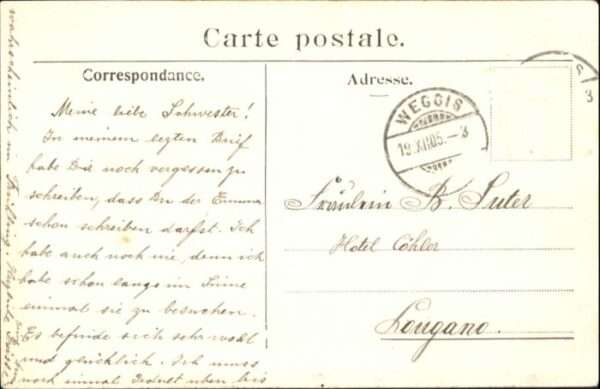 Carte postale.
Correspondance.
Adresse.
Meine liebe Schwester!
In meinem lezten Brif
habe Dir noch vergessen zu
schreiben, dass Du der Emma
schon schreiben darfst. Ich
habe auch noch nie, denn ich
habe schon langs im Sinne
einmal sie zu besuchen.
Es befinde sich sehr wohl
und glücklich. Ich muss
noch einmal bis
wahrscheinlich im
WEGGIS
19.XII.05.-3
Fräulein B. Suter
Hotel Cöhler
Lougano.